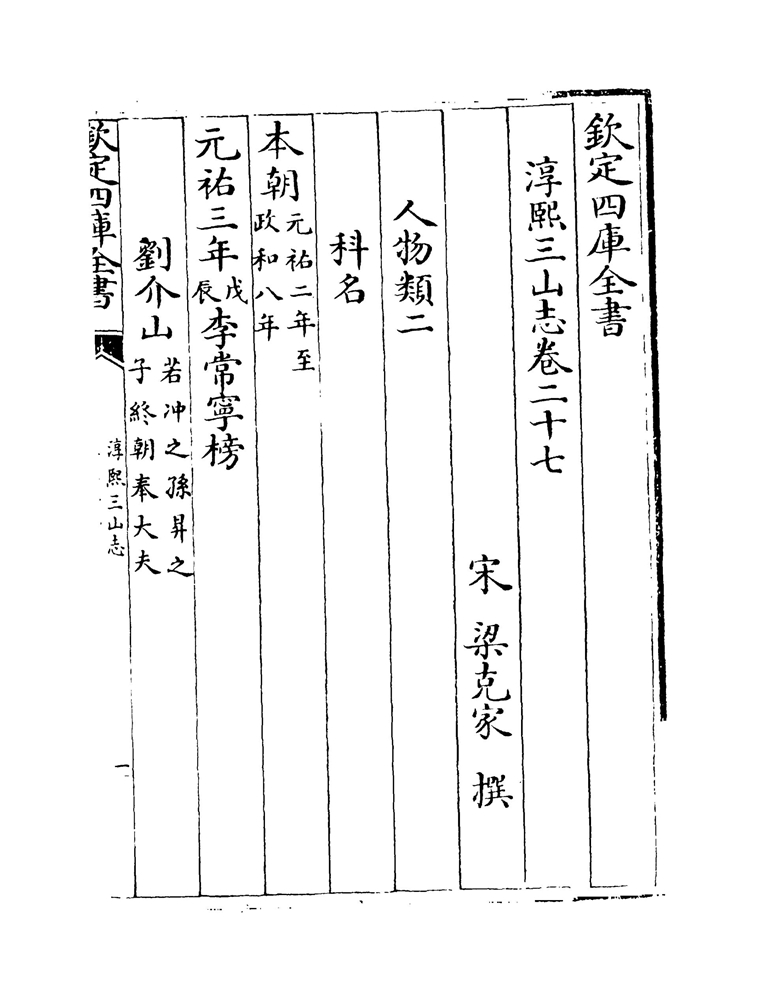 欽定四庫全書
淳熙三山志卷二十七
宋　梁克家　撰
人物類二
科名
本朝元祐二年至政和八年
元祐三年戊辰李常寧榜
劉介山若冲之孫昇之子終朝奉大夫
欽定四庫全書
淳熙三山志
一